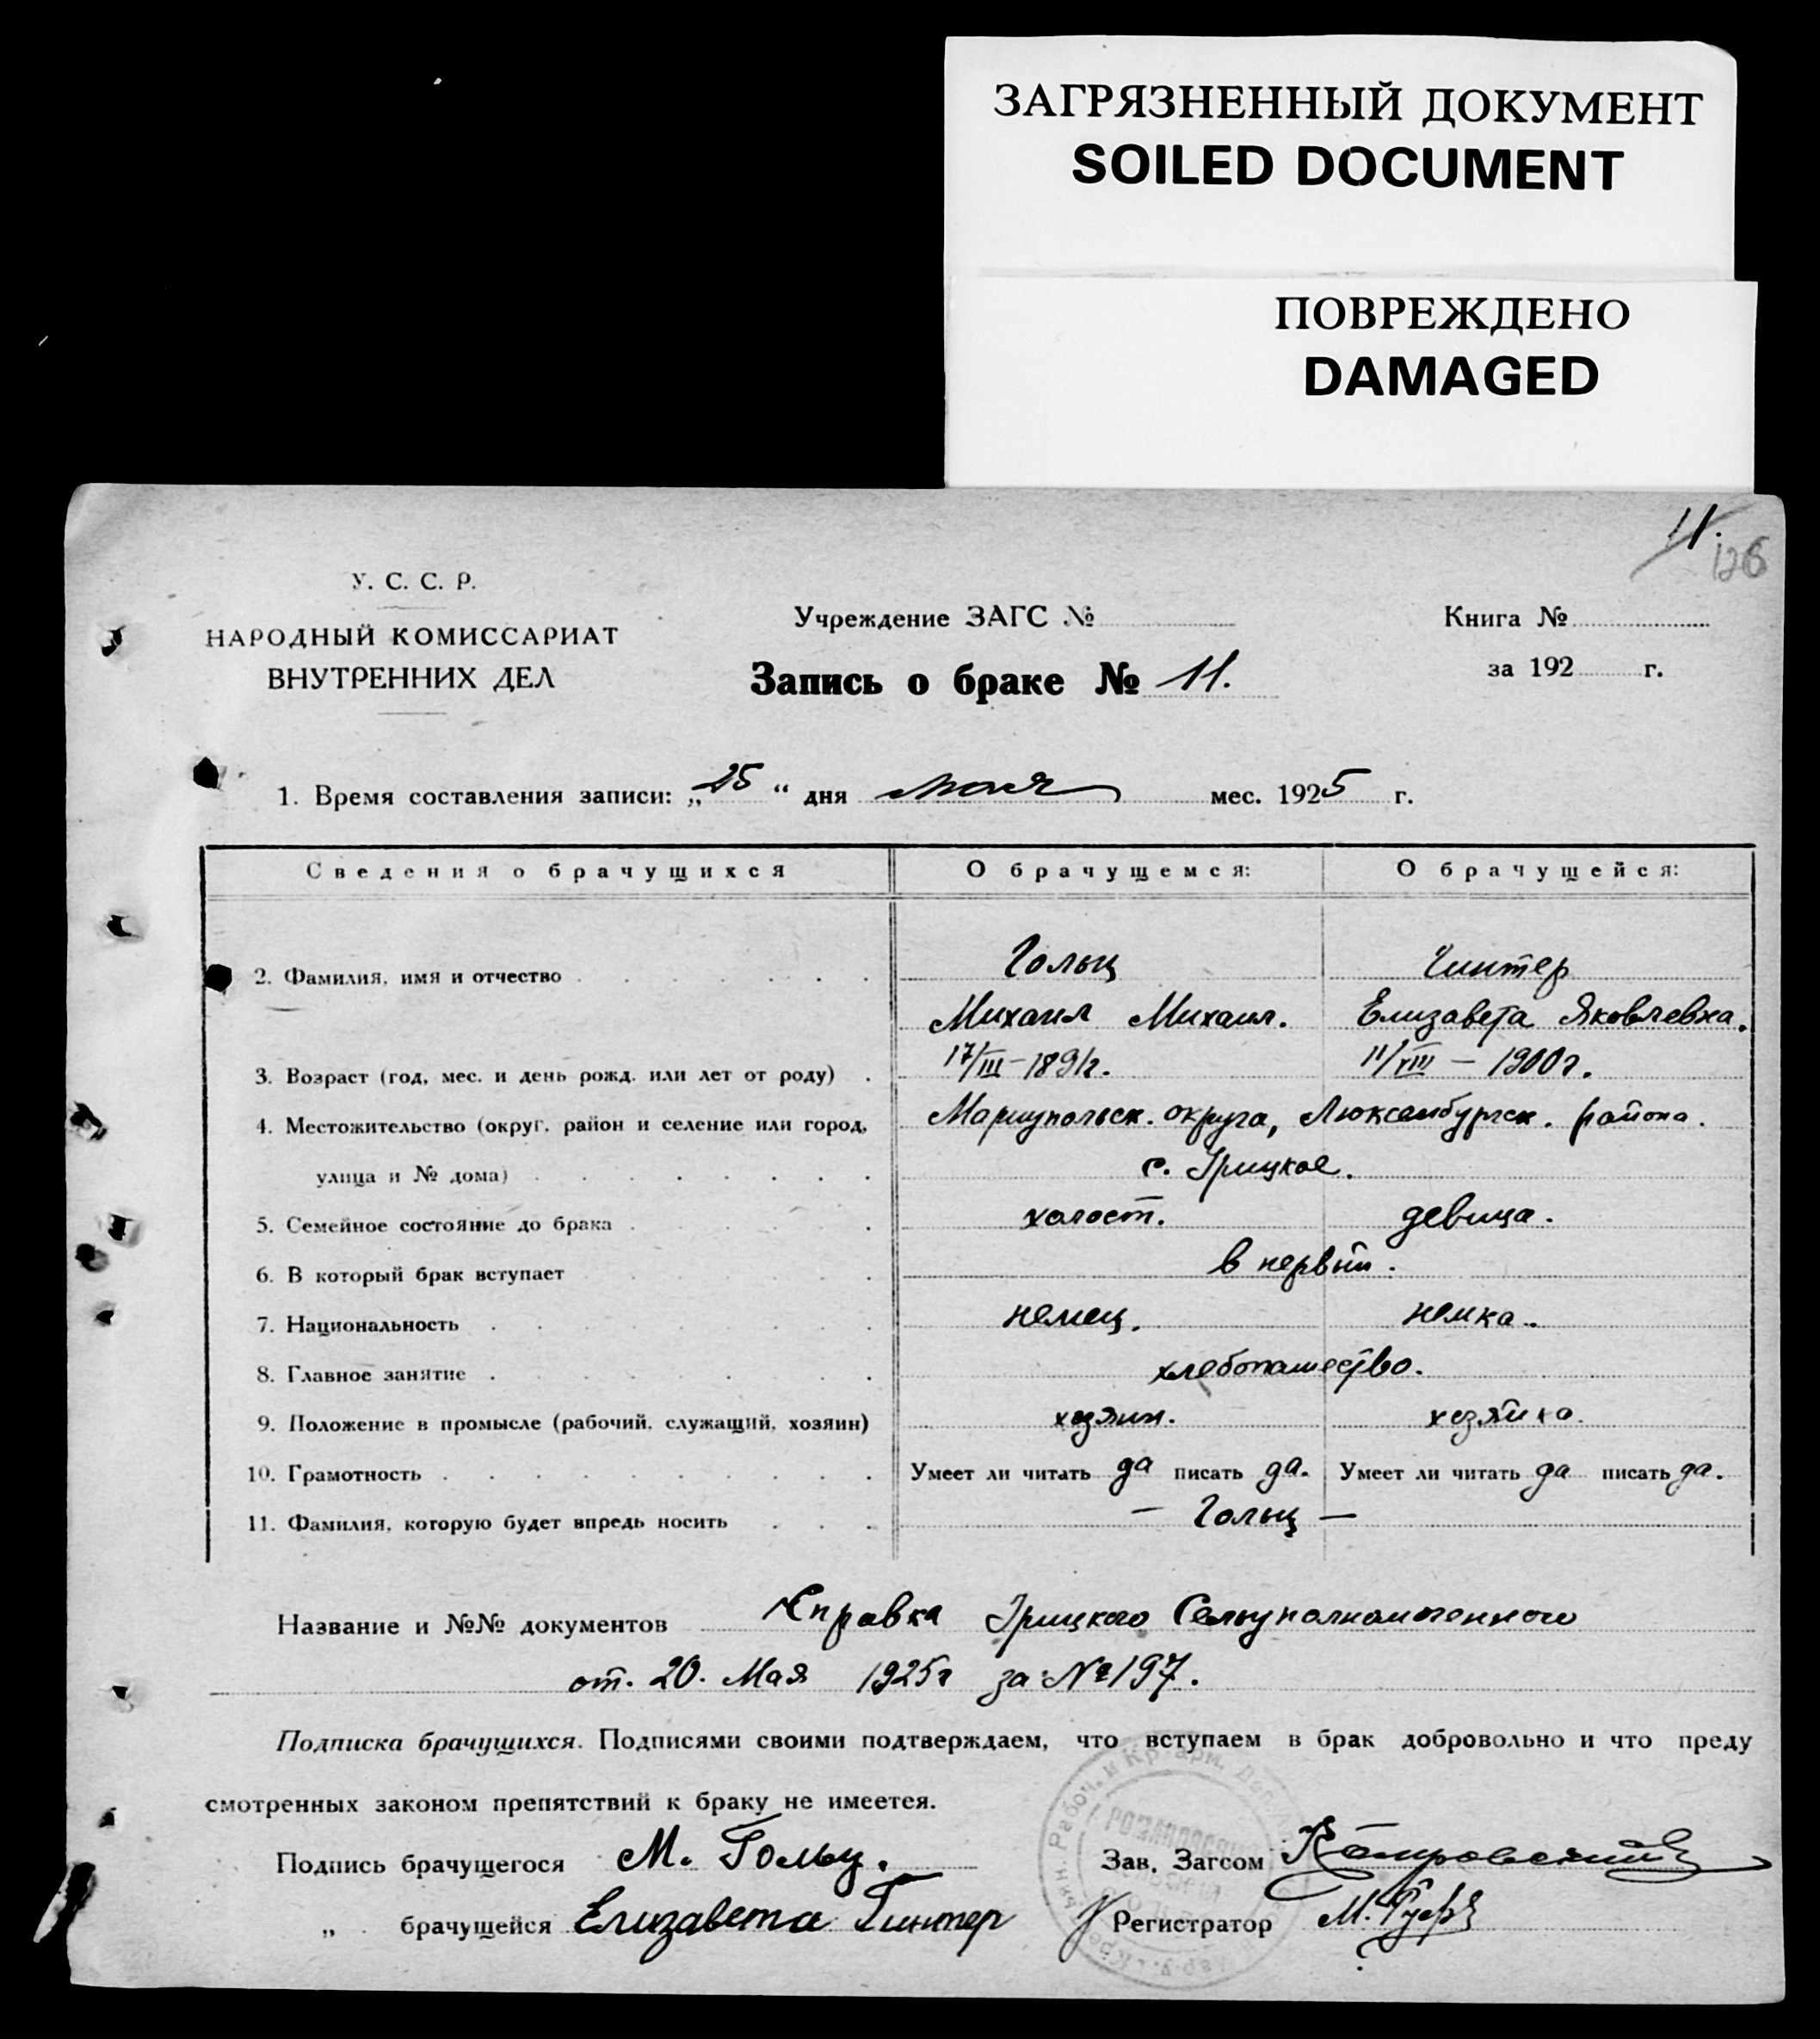 ЗАГРЯЗНЕННЫЙ ДОКУМЕНТ
SOILED DOCUMENT
ПОВРЕЖДЕНО
DAMAGED
11.
126
У. С. С. Р.
НАРОДНЫЙ КОМИССАРИАТ
ВНУТРЕННИХ ДЕЛ
Учреждение ЗАГС №
Запись о браке № 11.
Книга №
за 192 г.
1. Время составления записи: „25“ дня мая мес. 1925 г.
Сведения о брачущихся О брачущемся: О брачущейся:
2. Фамилия, имя и отчество Гольц Гинтер
Михаил Михаил. Елизавета Яковлевна.
3. Возраст (год, мес. и день рожд. или лет от роду) 17/III-1891г. 11/VIII - 1900г.
4. Местожительство (округ, район и селение или город, Мариупольск. округа, Люксембургск. района.
улица и № дома) с. Урицкое.
5. Семейное состояние до брака холост. девица.
6. В который брак вступает в первый.
7. Национальность немец. немка.
8. Главное занятие хлебопашество.
9. Положение в промысле (рабочий, служащий, хозяин) хозяин. хозяйка.
10. Грамотность Умеет ли читать да писать да. Умеет ли читать да писать да.
11. Фамилия, которую будет впредь носить — Гольц —
Название и №№ документов Справка Урицкого Сельуполномоченного
от. 20. Мая 1925г за №197.
Подписка брачущихся. Подписями своими подтверждаем, что вступаем в брак добровольно и что преду
смотренных законом препятствий к браку не имеется.
Подпись брачущегося М. Гольц. Зав. Загсом
„ брачущейся Елизавета Гинтер Регистратор М.